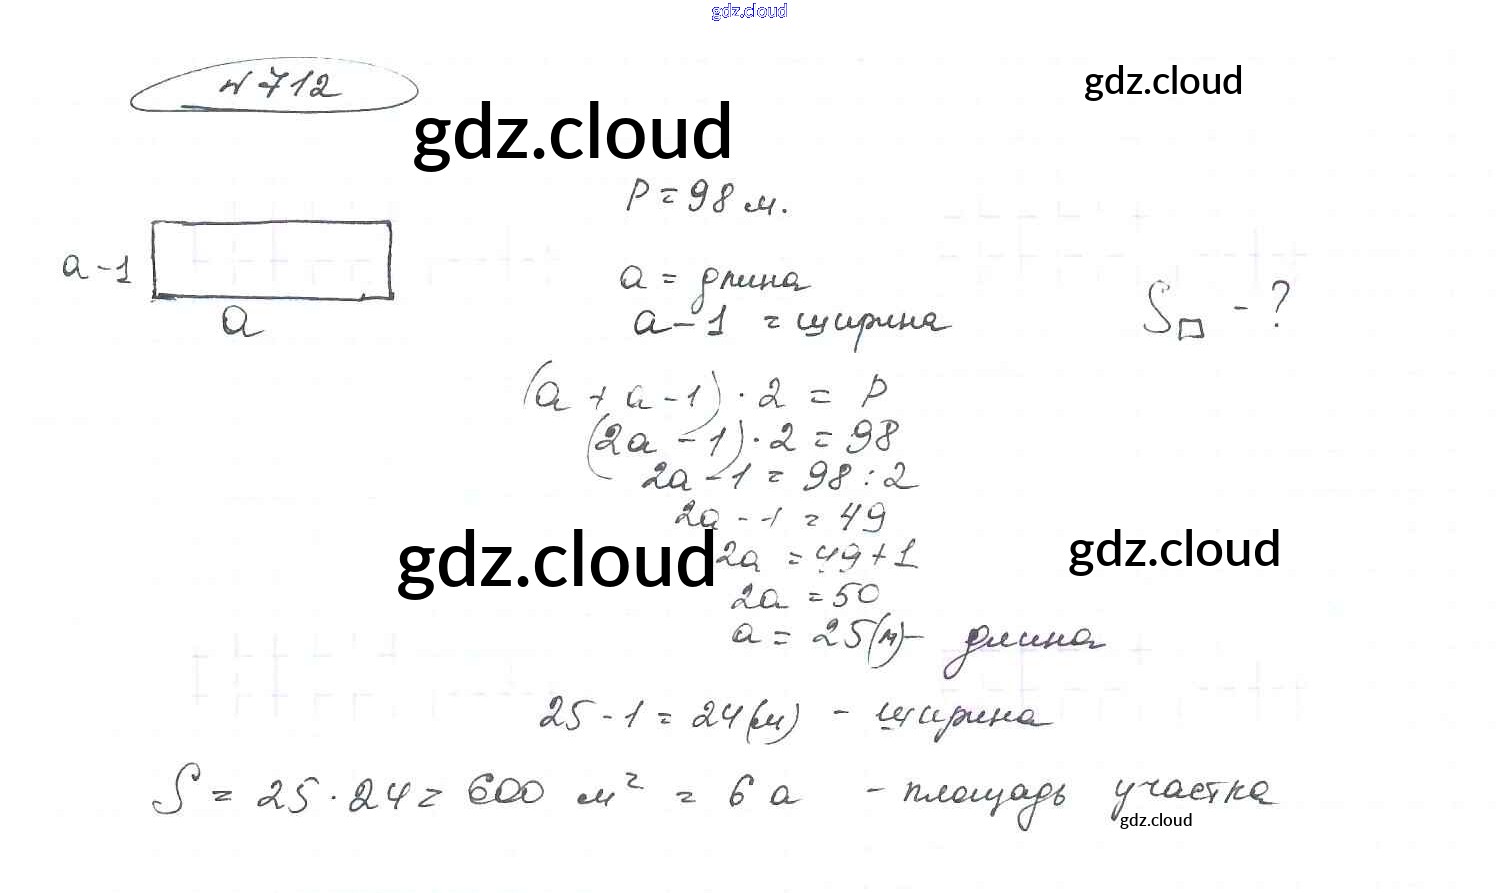 gdz.cloud
№ 712
gdz.cloud
gdz.cloud
P = 98 м.
a - 1
a
a = длина
a - 1 = ширина
S□ - ?
(a + a - 1) · 2 = P
(2a - 1) · 2 = 98
2a - 1 = 98 : 2
2a - 1 = 49
gdz.cloud
2a = 49 + 1
gdz.cloud
2a = 50
a = 25 (м) - длина
25 - 1 = 24 (м) - ширина
S = 25 · 24 = 600 м² = 6 a - площадь участка
gdz.cloud